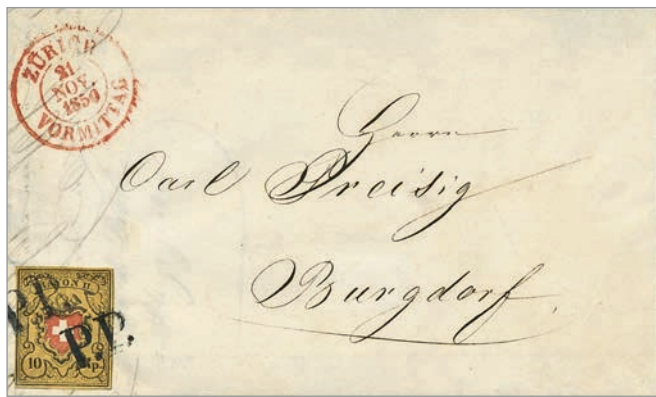 ZÜRICH
21
NOV.
1850
VORMITTAG
Herrn
Carl Preisig
Burgdorf.
RAYON II.
P.P.
10 Rp.